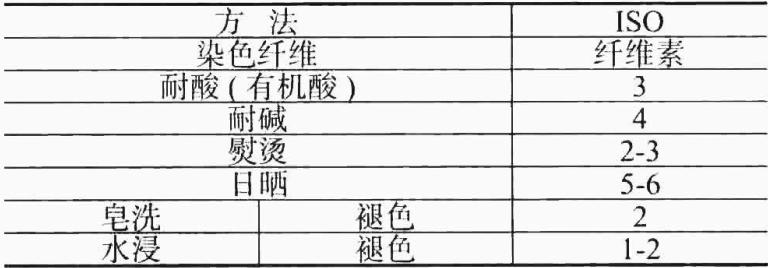 方 法 ISO
染色纤维 纤维素
耐酸(有机酸) 3
耐碱 4
熨烫 2-3
日晒 5-6
皂洗 褪色 2
水浸 褪色 1-2